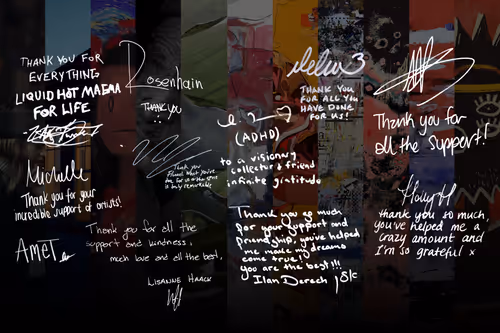 THANK YOU FOR
EVERYTHING
LIQUID HOT MAGMA
FOR LIFE
Rosenhain
THANK YOU
(ADHD)
to a visionary
collector & friend
infinite gratitude
THANK YOU
FOR ALL YOU
HAVE DONE
FOR US!
Thank you for
all the support!!
Michelle
Thank you for your
incredible support of artists!
Thank you
is truly remarkable
Thank you for all the
support and kindness,
much love and all the best,
LISANNE HAACK
Thank you so much
for your support and
friendship, you've helped
me make my dreams
come true!
you are the best!!!
Ilan Derech
thank you so much,
you've helped me a
crazy amount and
I'm so grateful x